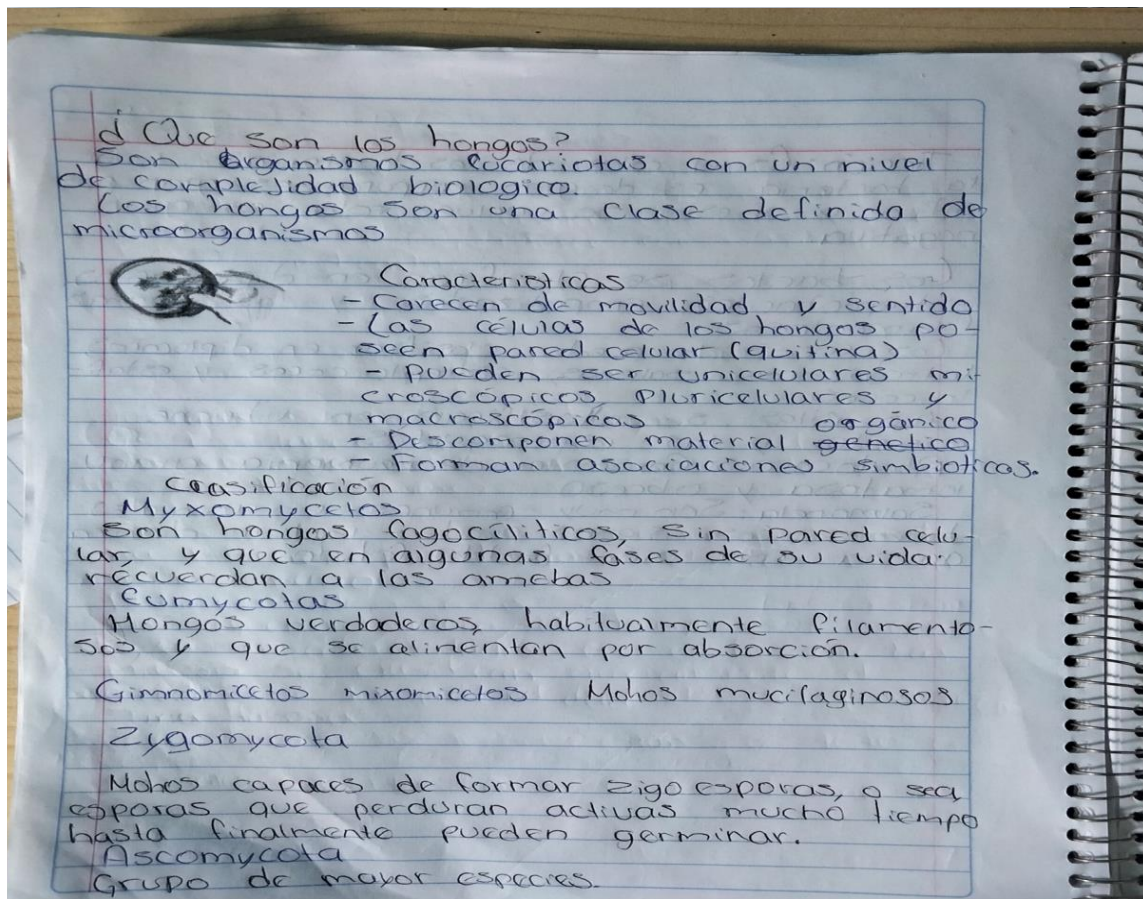 ¿Que son los hongos?
Son organismos eucariotas con un nivel
de complejidad biologico.
Los hongos son una clase definida de
microorganismos
Caracteristicas
- Carecen de movilidad y sentido
- Las células de los hongos po-
seen pared celular (quitina)
- pueden ser unicelulares mi-
croscópicos, pluricelulares y
macroscópicos
orgánico
- Descomponen material genetico
- Forman asociaciones simbioticas.
Clasificación
Myxomycetos
Son hongos fagocíliticos, sin pared celu-
lar, y que en algunas fases de su vida
recuerdan a las amebas
Eumycotas
Hongos verdaderos, habitualmente filamento-
sos y que se alimentan por absorción.
Gimnomicetos mixomicetos Mohos mucilaginosos
Zygomycota
Mohos capaces de formar zigoesporas, o sea,
esporas que perduran activas mucho tiempo
hasta finalmente pueden germinar.
Ascomycota
Grupo de mayor especies.